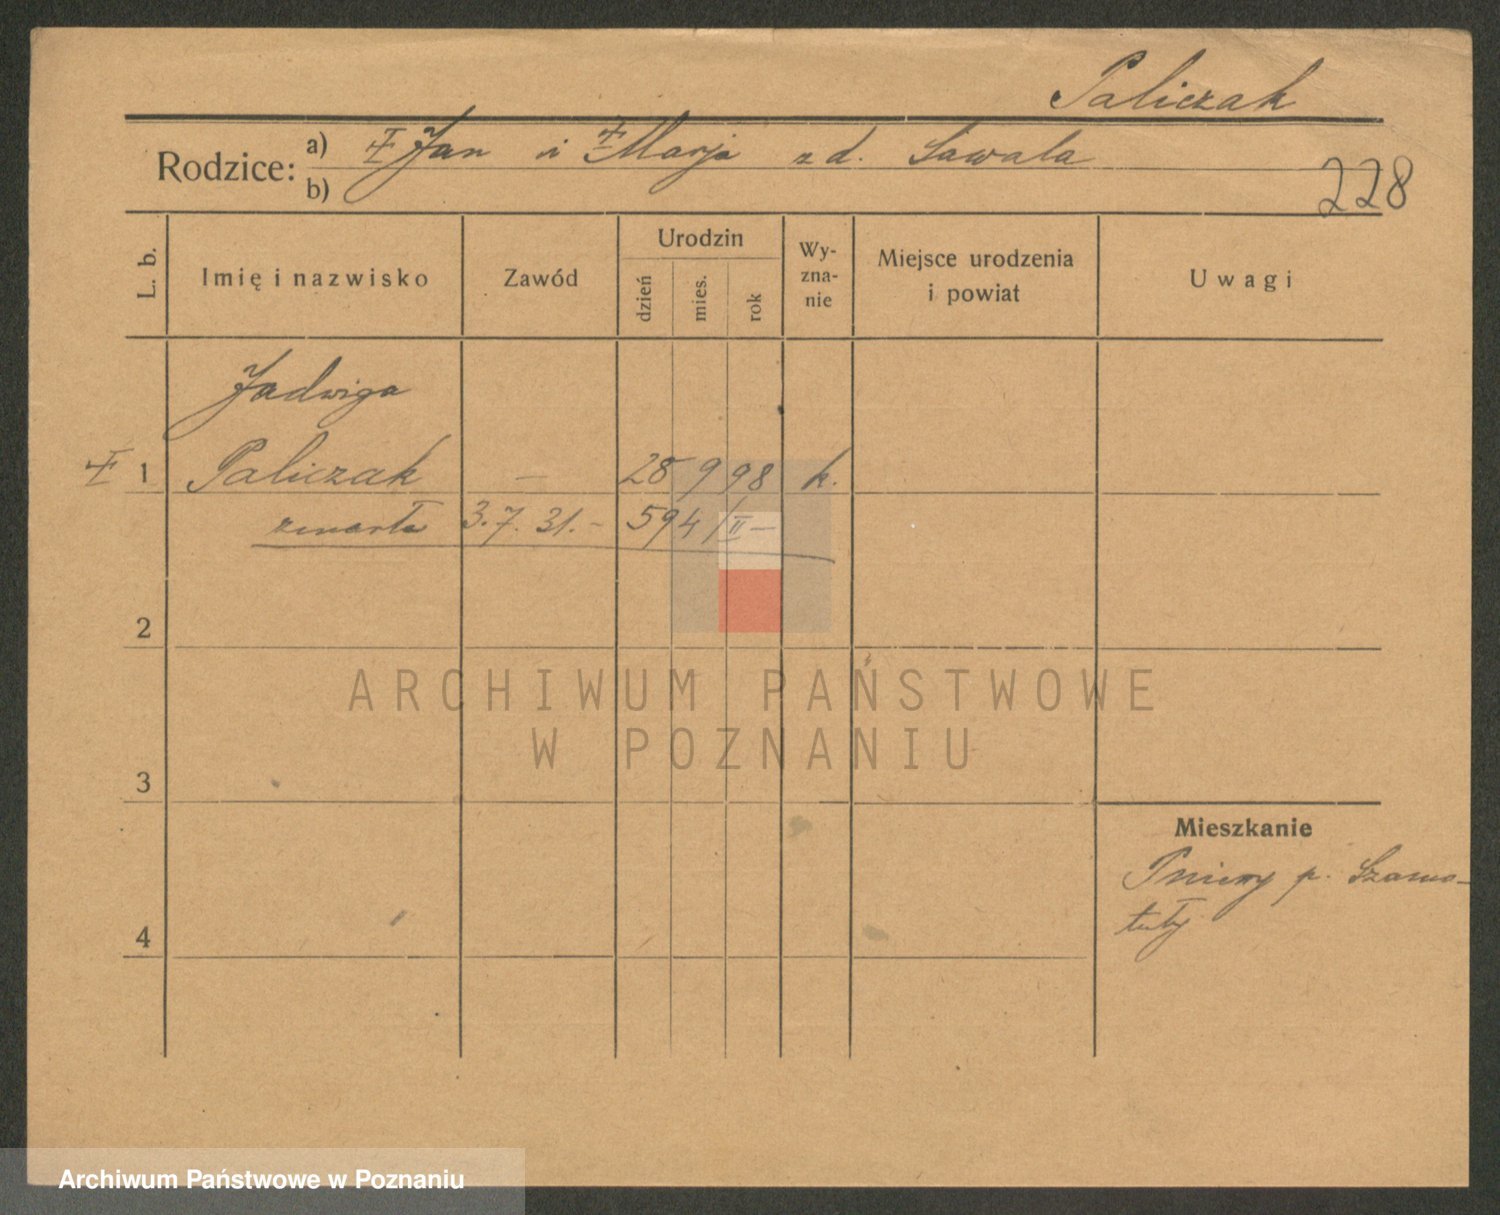 Paliczak
Rodzice: a) ‡ Jan i ‡ Marja z d. Sawala
b)
228
L. b.
Imię i nazwisko
Zawód
Urodzin
dzień
mies.
rok
Wy-
zna-
nie
Miejsce urodzenia
i powiat
Uwagi
Jadwiga
‡ 1 Paliczak — 28 9 98 k.
zmarła 3.7.31.– 594/II–
2
3
4
Mieszkanie
Pniewy p. Szamo-
tuły
ARCHIWUM PAŃSTWOWE
W POZNANIU
Archiwum Państwowe w Poznaniu